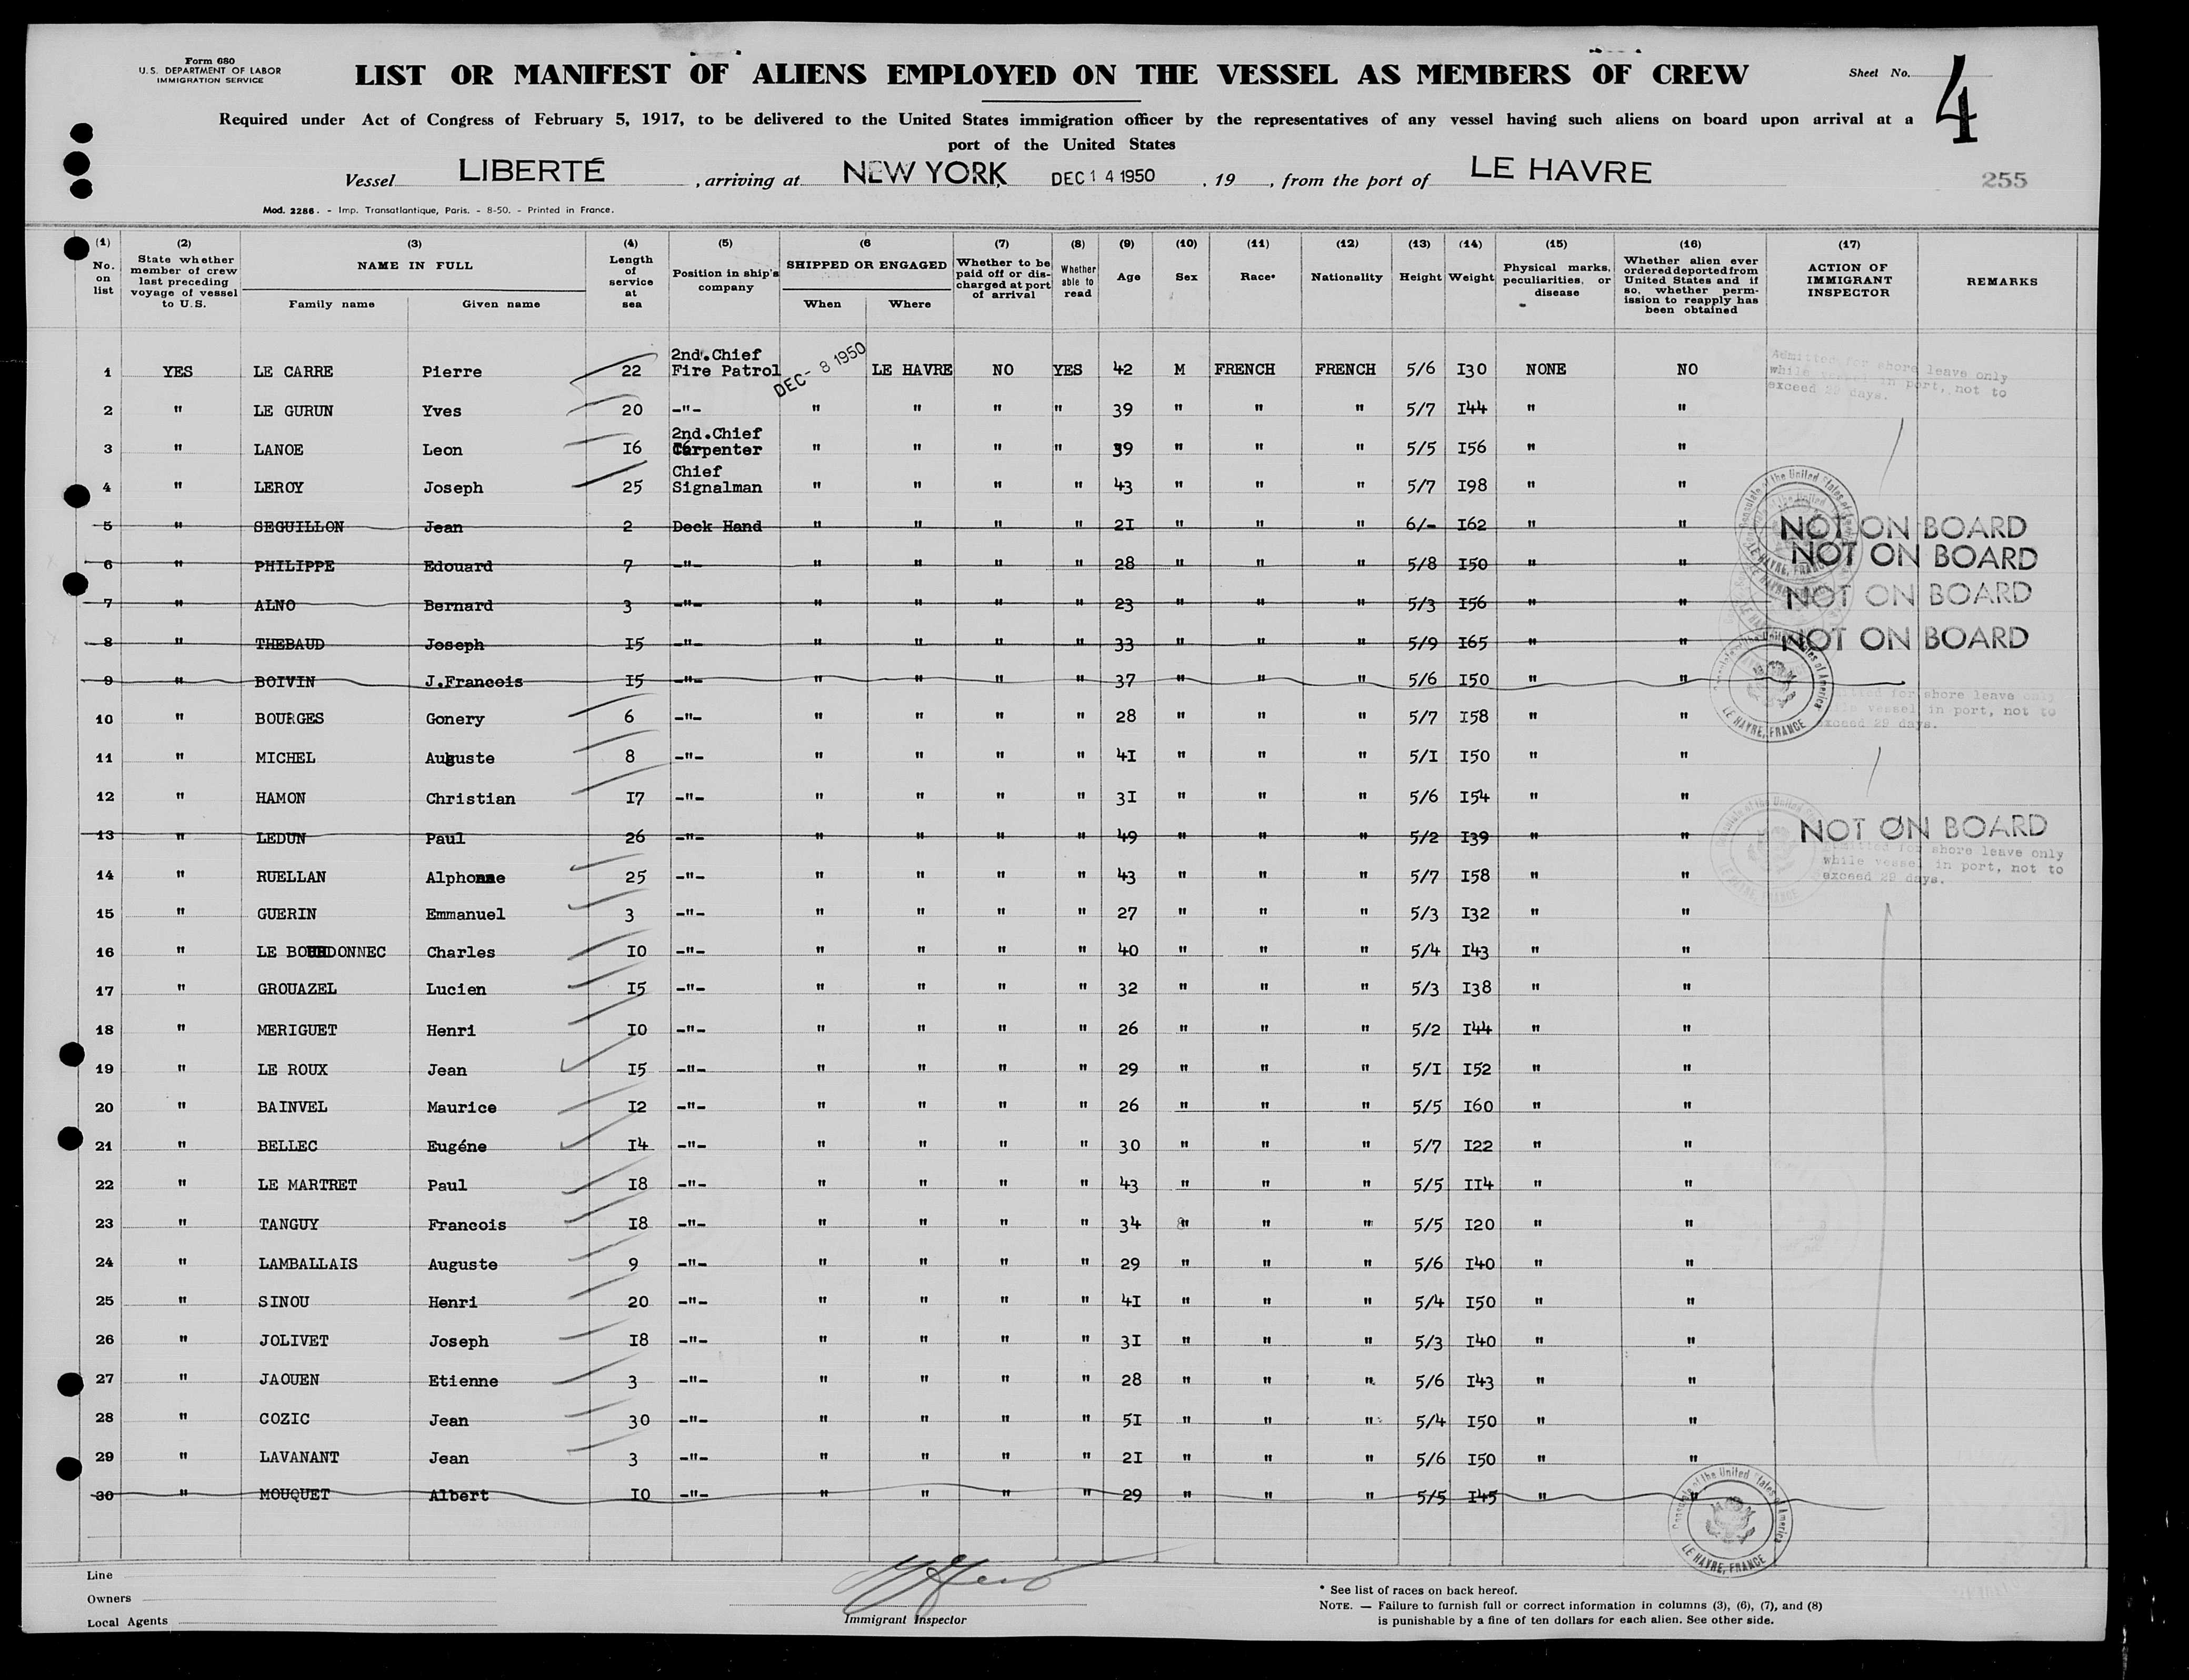 Form 680
U.S. DEPARTMENT OF LABOR
IMMIGRATION SERVICE
LIST OR MANIFEST OF ALIENS EMPLOYED ON THE VESSEL AS MEMBERS OF CREW
Sheet No. 4
Required under Act of Congress of February 5, 1917, to be delivered to the United States immigration officer by the representatives of any vessel having such aliens on board upon arrival at a
port of the United States
Vessel LIBERTÉ , arriving at NEW YORK DEC 14 1950 , 19 , from the port of LE HAVRE
255
Mod. 2286. - Imp. Transatlantique, Paris. - 8-50. - Printed in France.
(1) No. on list (2) State whether member of crew last preceding voyage of vessel to U.S. (3) NAME IN FULL Family name Given name (4) Length of service at sea (5) Position in ship's company (6 SHIPPED OR ENGAGED When Where (7) Whether to be paid off or discharged at port of arrival (8) Whether able to read (9) Age (10) Sex (11) Race* (12) Nationality (13) Height (14) Weight (15) Physical marks, peculiarities, or disease (16) Whether alien ever ordered deported from United States and if so, whether permission to reapply has been obtained (17) ACTION OF IMMIGRANT INSPECTOR REMARKS
1 YES LE CARRE Pierre 22 2nd.Chief Fire Patrol DEC - 8 1950 LE HAVRE NO YES 42 M FRENCH FRENCH 5/6 I30 NONE NO Admitted for shore leave only while vessel in port, not to exceed 29 days.
2 " LE GURUN Yves 20 -"- " " " " 39 " " " 5/7 I44 " "
3 " LANOE Leon I6 2nd.Chief Carpenter " " " " 39 " " " 5/5 I56 " "
4 " LEROY Joseph 25 Chief Signalman " " " " 43 " " " 5/7 I98 " "
5 " SEGUILLON Jean 2 Deck Hand " " " " 2I " " " 6/- I62 " " NOT ON BOARD
6 " PHILIPPE Edouard 7 -"- " " " " 28 " " " 5/8 I50 " " NOT ON BOARD
7 " ALNO Bernard 3 -"- " " " " 23 " " " 5/3 I56 " " NOT ON BOARD
8 " THEBAUD Joseph I5 -"- " " " " 33 " " " 5/9 I65 " " NOT ON BOARD
9 " BOIVIN J.Francois I5 -"- " " " " 37 " " " 5/6 I50 " "
10 " BOURGES Gonery 6 -"- " " " " 28 " " " 5/7 I58 " " Admitted for shore leave only while vessel in port, not to exceed 29 days.
11 " MICHEL Auguste 8 -"- " " " " 4I " " " 5/I I50 " "
12 " HAMON Christian I7 -"- " " " " 3I " " " 5/6 I54 " "
13 " LEDUN Paul 26 -"- " " " " 49 " " " 5/2 I39 " " NOT ON BOARD
14 " RUELLAN Alphonse 25 -"- " " " " 43 " " " 5/7 I58 " " Admitted for shore leave only while vessel in port, not to exceed 29 days.
15 " GUERIN Emmanuel 3 -"- " " " " 27 " " " 5/3 I32 " "
16 " LE BOURDONNEC Charles I0 -"- " " " " 40 " " " 5/4 I43 " "
17 " GROUAZEL Lucien I5 -"- " " " " 32 " " " 5/3 I38 " "
18 " MERIGUET Henri I0 -"- " " " " 26 " " " 5/2 I44 " "
19 " LE ROUX Jean I5 -"- " " " " 29 " " " 5/I I52 " "
20 " BAINVEL Maurice I2 -"- " " " " 26 " " " 5/5 I60 " "
21 " BELLEC Eugéne I4 -"- " " " " 30 " " " 5/7 I22 " "
22 " LE MARTRET Paul I8 -"- " " " " 43 " " " 5/5 II4 " "
23 " TANGUY Francois I8 -"- " " " " 34 " " " 5/5 I20 " "
24 " LAMBALLAIS Auguste 9 -"- " " " " 29 " " " 5/6 I40 " "
25 " SINOU Henri 20 -"- " " " " 4I " " " 5/4 I50 " "
26 " JOLIVET Joseph I8 -"- " " " " 3I " " " 5/3 I40 " "
27 " JAOUEN Etienne 3 -"- " " " " 28 " " " 5/6 I43 " "
28 " COZIC Jean 30 -"- " " " " 5I " " " 5/4 I50 " "
29 " LAVANANT Jean 3 -"- " " " " 2I " " " 5/6 I50 " "
30 " MOUQUET Albert I0 -"- " " " " 29 " " " 5/5 I45 " "
Consulate of the United States of America
LE HAVRE, FRANCE
Line
Owners
Local Agents
Immigrant Inspector
* See list of races on back hereof.
NOTE. — Failure to furnish full or correct information in columns (3), (6), (7), and (8)
is punishable by a fine of ten dollars for each alien. See other side.